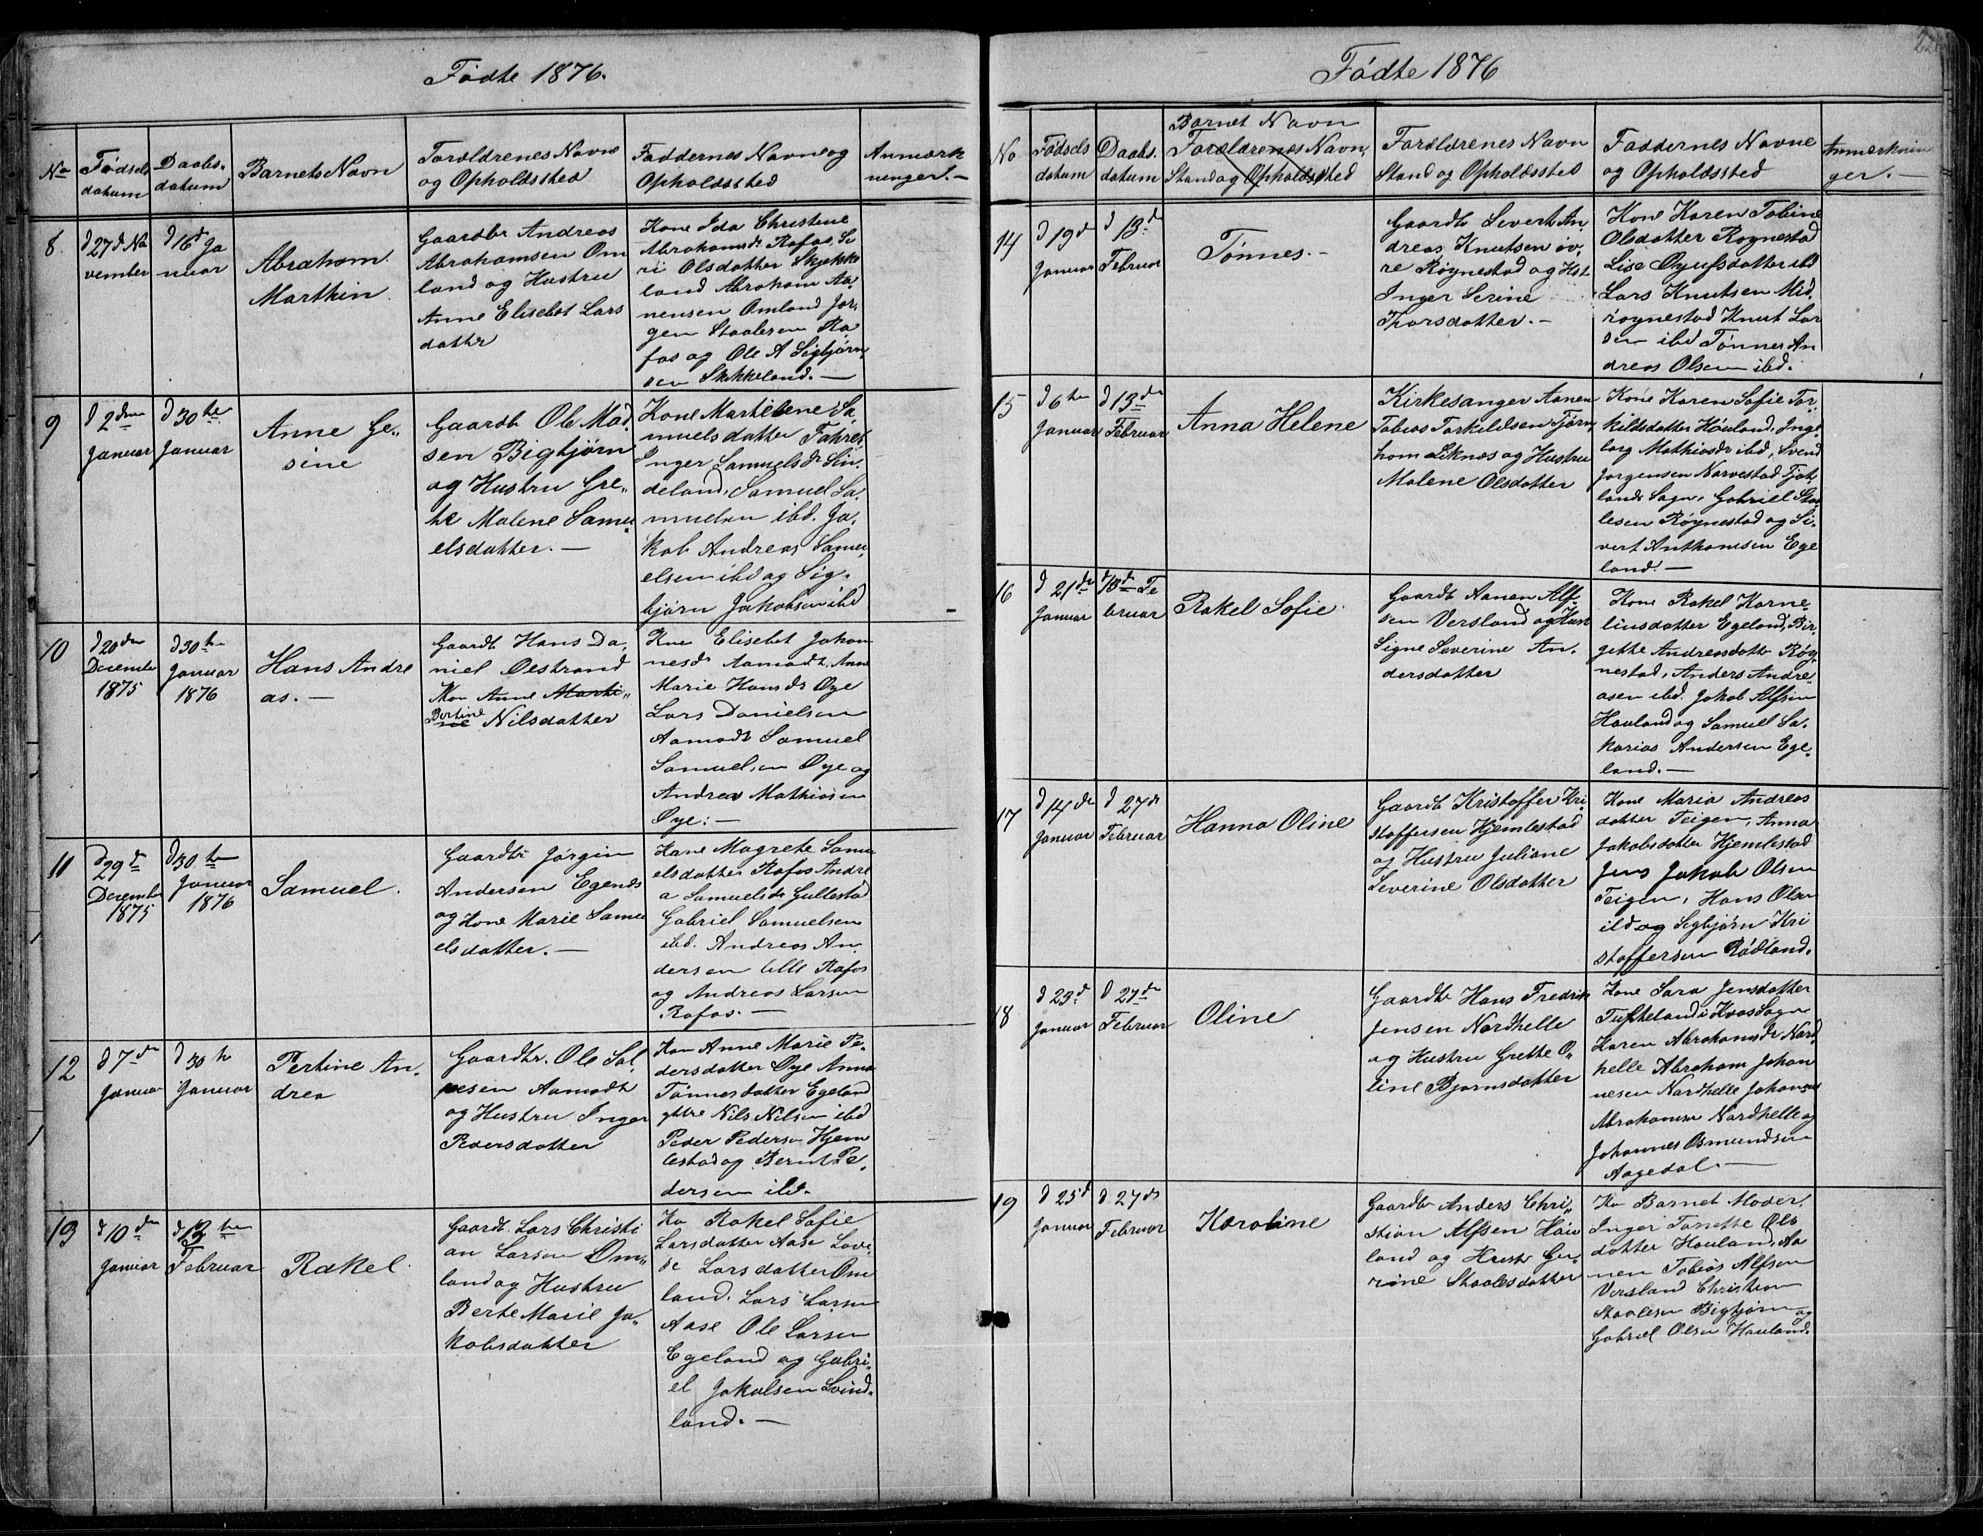 Fødte 1876.
No
Fødsels
datum
Daabs-
datum
Barnets Navn
Forældrenes Navne
og Opholdssted
Faddernes Navne og
Opholdssted
Anmærk
ninger. —
8.
d 27d No
vember
d 16d Ja
nuar
Abraham
Marthin.
Gaardbr Andreas
Abrahamsen Om
land og Hustru
Anne Elisebet Lars
datter
Kone Ida Christine
Abrahamsdr Rafos Se
ri Olsdatter Skjekke
land Abraham Aa
nensen Omland Jør-
gen Staalesen Ra
fos og Ole A Sigbjørn
sen Skjekkeland. —
9
d 2den
Januar
d 30te
Januar
Anne Ge-
sine
Gaardb Ole Mad
sen Bigbjørn
og Hustru Gre-
te Malene Samu
elsdatter. —
Kone Martilene Sa
muelsdatter Faaret
Inger Samuelsdr Sin
deland, Samuel Sa-
muelsen ibd. Ja-
kob Andreas Samu
elsen ibd og Sig-
bjørn Jakobsen ibd
10
d 20den
December
1875
d 30te
Januar
1876
Hans Andre
as. —
Gaardb Hans Da-
niel Oestrand
Kon Anne Marti-
Bertine
ne Nilsdatter
Kne Elisebet Johan
nesdr Aamodt, Anne
Marie Hansdr Øye
Lars Danielsen
Aamodt Samuel
Samuelsen Øye og
Andreas Mathiasen
Øye. —
11
d 29d
December
1875
d 30te
Januar
1876
Samuel.
Gaardbr Jørgen
Andersen Egenes
og Kone Marie Samu
elsdatter. —
Kone Magrete Samu
elsdatter Rafos Andre
a Samuelsdr Gullestad
Gabriel Samuelsen
ibd. Andreas An-
dersen lille Rafos
og Andreas Larsen
Rafos. —
12
d 7de
Januar
d 30te
Januar
Pertine An-
drea
Gaardbr. Ole Sal
vesen Aamodt
og Hustru Inger
Pedersdatter
Kon Anne Marie Pe-
dersdatter Øye Anna
Tønnesdatter Egeland
yttre Nils Nilsen ibd
Peder Pedersen Hjem
lestad og Bernt Pe-
dersen ibd.
13
d 10den
Januar
d 13te
Februar
Rakel.
Gaardb. Lars Christi
an Larsen Om-
land og Hustru
Berte Marie Ja-
kobsdatter
Ko Rakel Sofie
Larsdatter Aase Lovi-
se Larsdatter Om
land. Lars Larsen
Aase Ole Larsen
Egeland og Gabri-
el Jakobsen Svind-
land. —
Fødte 1876
No
Fødsels
datum
Daabs.
datum
Barnet Navn
Forældrenes Navn,
Stand og Opholdssted
Forældrenes Navn
Stand og Opholdssted
Faddernes Navne
og Opholdssted
Anmerknin
ger. —
14
d 19d
Januar
d 13de
Februar
Tønnes. —
Gaardb Severt An
dreas Knutsen øv-
re Røynestad og Hst
Inger Serine
Thorsdatter. —
Kone Karen Tobine
Olsdatter Røynestad
Lise Øyufsdatter ibd
Lars Knutsen Mid
røynestad Knut Lar
sen ibd Tønnes An
dreas Olsen ibd.
15
d 6te
Januar
d 13de
Februar
Anna Helene
Kirkesanger Aanen
Tobias Torkildsen Tjørn
hom Liknes og Hustru
Malene Olsdatter
Kone Karen Sofie Tor-
kildsdatter Houland, Inge
borg Mathiasdr ibd, Svend
Jørgensen Narvestad Fjot
lands Sogn, Gabriel Staa
lesen Røynestad og Si-
vert Anthonisen Ege
land. —
16
d 21de
Januar
d 13d Fe
bruar
Rakel Sofie.
Gaardb Aanen Alf
sen Versland og Hust
Signe Severine An-
dersdatter
Kone Rakel Korne-
liusdatter Egeland, Bir-
gitte Andreasdatt Røy-
nestad, Anders Andre-
asen ibd. Jakob Alfsen
Houland og Samuel Sa-
karias Andersen Ege-
land. —
17
d 14de
Januar
d 27de
Februar
Hanna Oline
Gaardb Kristoffer Kri
stoffersen Hjemlestad
og Hustru Juliane
Severine Olsdatter
Kone Maria Andreas
datter Teigen, Anna
Jakobsdatter Hjemlestad
Jens Jakob Olsen
Teigen, Hans Olsen
ibd og Sigbjørn Kri
stoffersen Rødland.
18
d 23d
Januar
d 27de
Februar
Oline
Gaardb Hans Fredrik
Jensen Nordhelle
og Hustru Grette O-
line Bjornsdatter
Kone Sara Jensdatter
Tufteland i Kvas Sogn
Karen Abrahamsdr Nord
helle Abraham Johan
nesen Nordhelle Johannes
Abrahamsen Nordhelle og
Johannes Osmundsen
Aagedal. —
19
d 25d
Januar
d 27de
Februar
Karoline
Gaardb Anders Chri-
stian Alfsen Hou
land og Hust Gu-
rine Staalesdatter
Ko Barnet Moder.
Inger Tonette Ols
datter Houland, Aa
nen Tobias Alfsen
Versland Christian
Staalesen Bigbjørn og
Gabriel Olsen Houland.